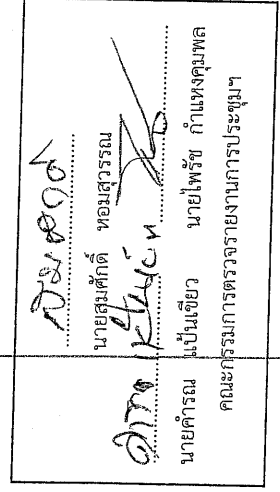 สมศักดิ์
นายสมศักดิ์ หอมสุวรรณ
นายคำรณ แป้นเขียว นายไพรัช กำแหงคุมพล
คณะกรรมการตรวจรายงานการประชุมฯ